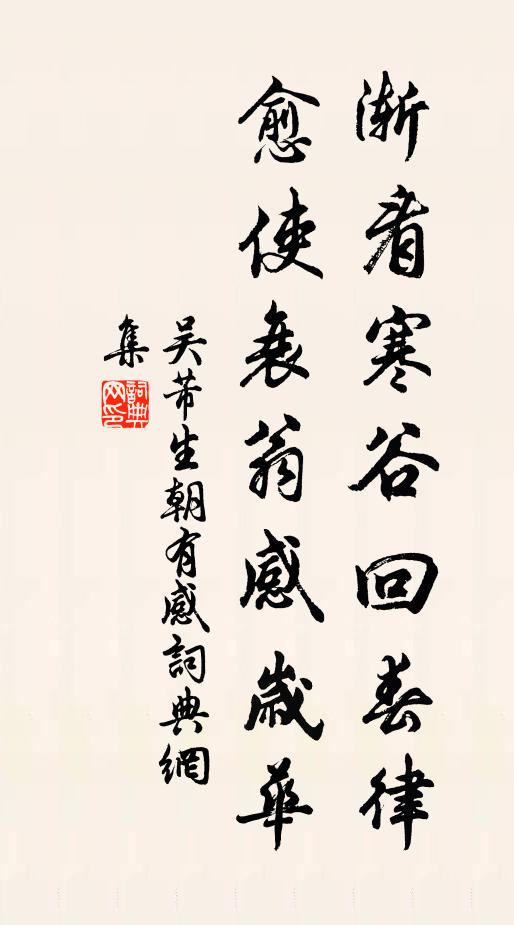 渐看寒谷回春律
愈使衰翁感歲華
吴芾生朝有感詞典網
集
詞典
网印